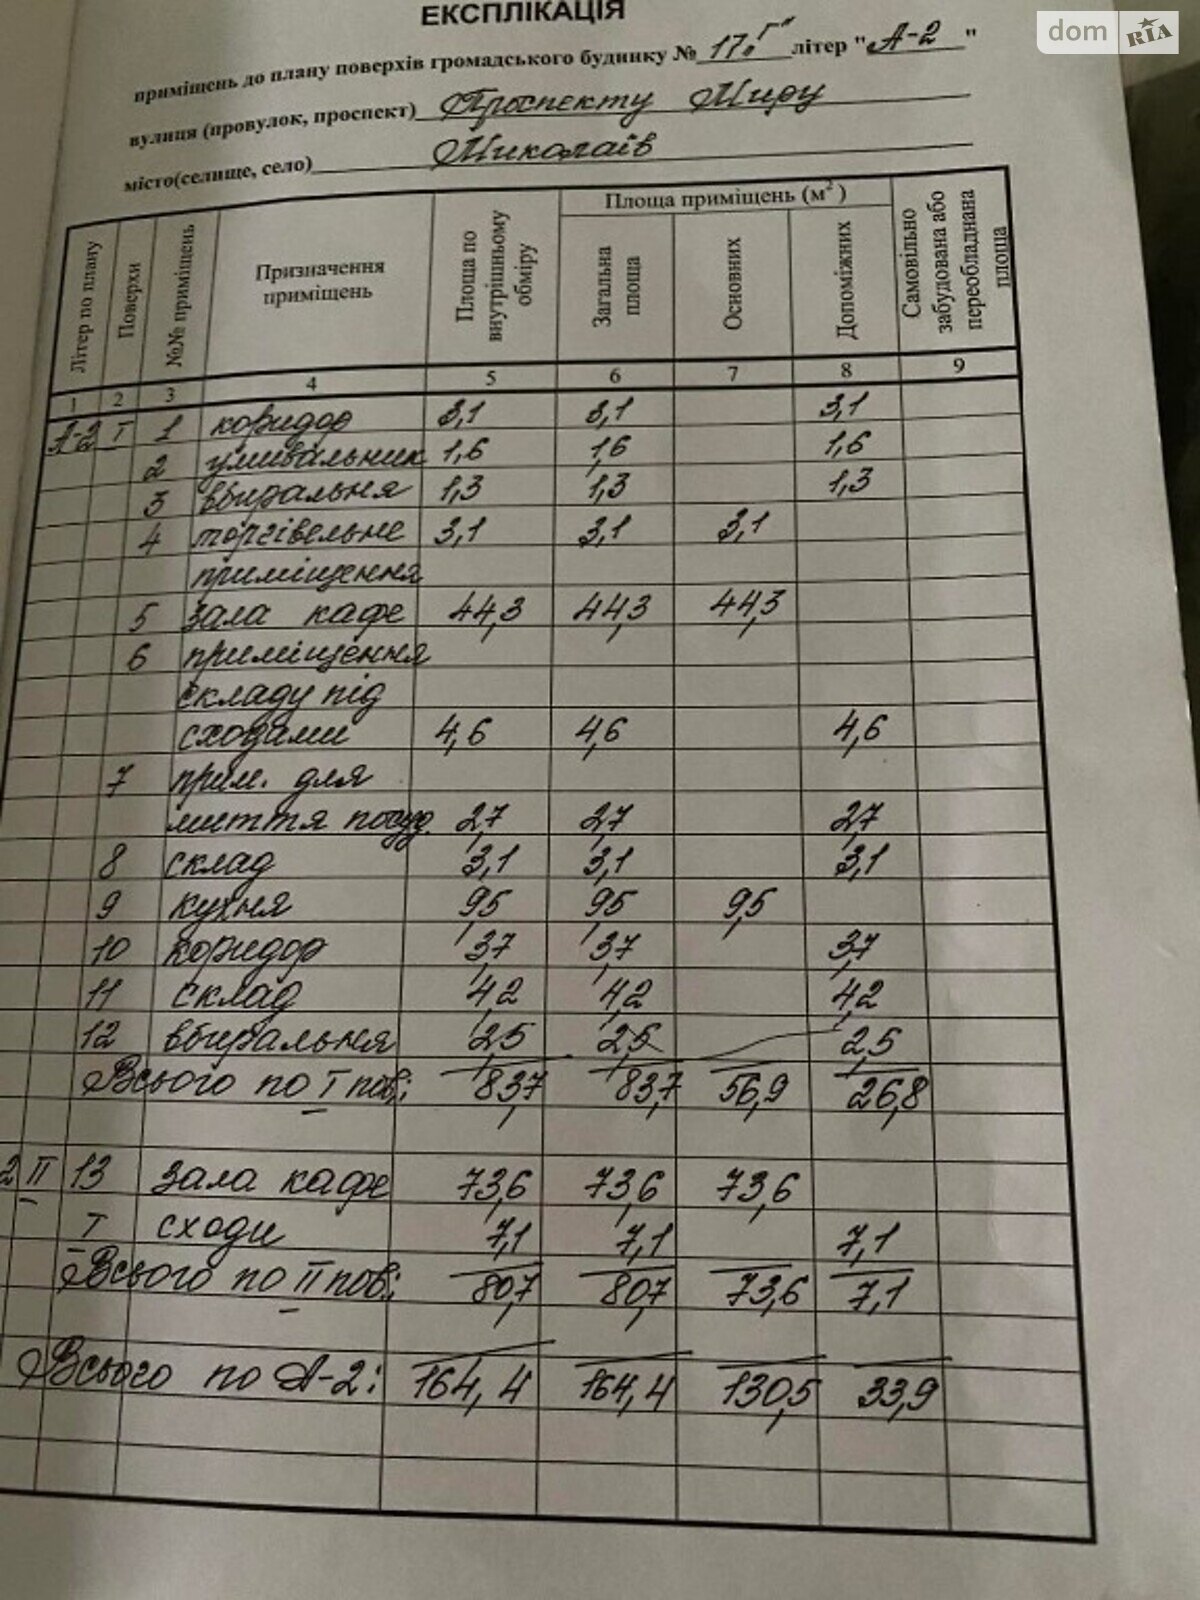 dom RIA
ЕКСПЛІКАЦІЯ
приміщень до плану поверхів громадського будинку № 17 "Г" літер "А-2"
вулиця (провулок, проспект) Проспекту Миру
місто(селище, село) Миколаїв
Літер по плану
Поверхи
№№ приміщень
Призначення приміщень
Площа по внутрішньому обміру
Площа приміщень (м2)
Загальна площа
Основних
Допоміжних
Самовільно забудована або переобладнана площа
1 2 3 4 5 6 7 8 9
А-2 I 1 коридор 3,1 3,1 3,1
2 умивальник 1,6 1,6 1,6
3 вбиральня 1,3 1,3 1,3
4 торгівельне 3,1 3,1 3,1
приміщення
5 зала кафе 44,3 44,3 44,3
6 приміщення
складу під
сходами 4,6 4,6 4,6
7 прим. для
миття посуд. 2,7 2,7 2,7
8 склад 3,1 3,1 3,1
9 кухня 9,5 9,5 9,5
10 коридор 3,7 3,7 3,7
11 склад 4,2 4,2 4,2
12 вбиральня 2,5 2,5 2,5
Всього по I пов.: 83,7 83,7 56,9 26,8
2 II 13 зала кафе 73,6 73,6 73,6
I сходи 7,1 7,1 7,1
Всього по II пов: 80,7 80,7 73,6 7,1
Всього по А-2: 164,4 164,4 130,5 33,9